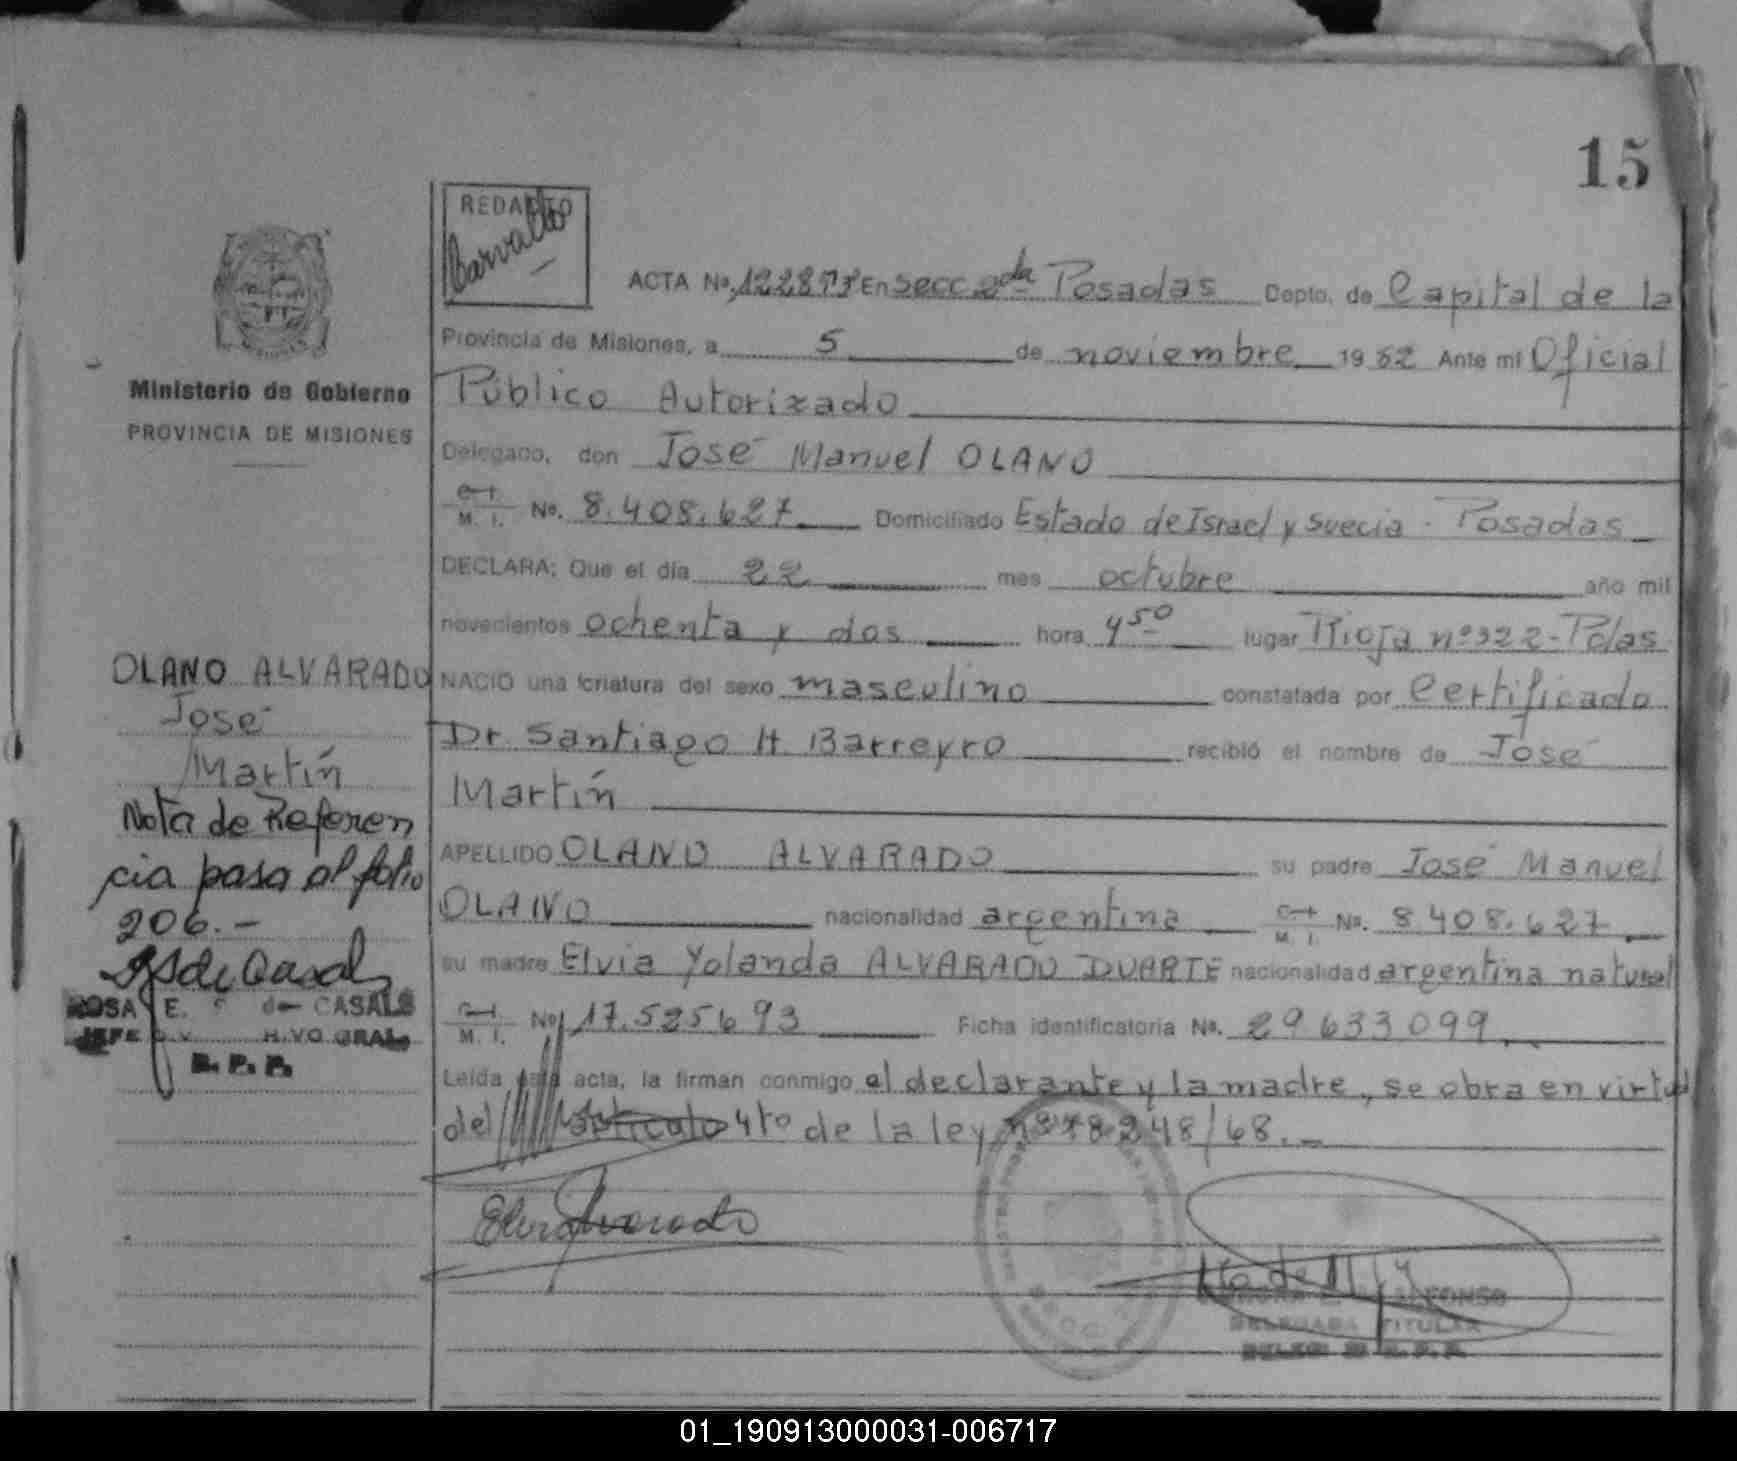 15
REDACTO
Carvallo
ACTA No. 122873 En Secc 2da Posadas Dpto. de Capital de la
Provincia de Misiones, a 5 de noviembre 1982 Ante mi Oficial
Público Autorizado
Ministerio de Gobierno
PROVINCIA DE MISIONES
Delegado, don José Manuel OLANO
M. I. No. 8.408.627 Domiciliado Estado de Israel y Suecia. Posadas
DECLARA: Que el día 22 mes octubre año mil
novecientos ochenta y dos hora 4 50 lugar Rioja nº 322-Pdas
NACIO una criatura del sexo masculino constatada por Certificado
Dr. Santiago H. Barreyro recibió el nombre de José
Martín
APELLIDO OLANO ALVARADO su padre José Manuel
OLANO nacionalidad argentina M. I. No. 8.408.627
su madre Elvia Yolanda ALVARADO DUARTE nacionalidad argentina natural
M. I. No. 17.525693 Ficha identificatoria No. 29633099
Leida esta acta, la firman conmigo el declarante y la madre, se obra en virtud
del articulo 4to de la ley nº 18248/68.-
OLANO ALVARADO
José
Martín
Nota de Referen
cia pasa al folio
206.-
ROSA E. de CASALS
JEFE GRAL
R. P. P.
Elvia Alvarado
ALFONSO
DELEGADA TITULAR
01_190913000031-006717